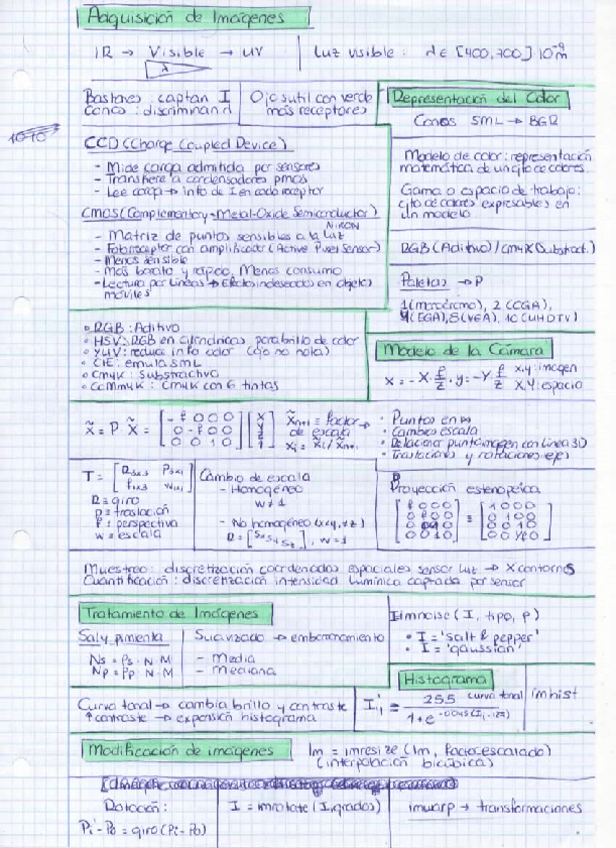 Adquisición de Imágenes
IR → Visible → UV
λ
Luz visible: λ ∈ [400,700] 10⁻⁹m
Bastones: captan I
Conos: discriminan λ
Ojo sutil con verde
más receptores
Representación del Color
Conos SML → BGR
CCD (Charge Coupled Device)
- Mide carga admitida por sensores
- Transfiere a condensadores
- Lee carga → info de I en cada receptor
CMOS (Complementary-Metal-Oxide Semiconductor)
- Matriz de puntos sensibles a la luz
- Fotorreceptor con amplificador (Active Pixel Sensor)
- Menos sensible
- Más barato y rápido, Menos consumo
- Lectura por líneas → Efectos indeseados en objetos
móviles
Modelo de color: representación
matemática de un cjto de colores.
Gama o espacio de trabajo:
cjto de colores expresables en
un modelo
RGB (Aditivo) / CMYK (Substract.)
Paletas → P
1 (monocromo), 2 (CGA),
4 (EGA), 8 (VGA), 10 (UHDTV)
• RGB: Aditivo
• HSV: RGB en cilíndricas para brillo de color
• YUV: reduce info color (ojo no nota)
• CIE: emula SML
• CMYK: Substractivo
• CcMmYK: CMYK con 6 tintas
Modelo de la Cámara
x = -X·f/z, y = -Y f/z
x,y: imagen
X,Y: espacio
x̃ = P·X̃ = [-f 0 0 0
0 -f 0 0
0 0 1 0] [X
Y
Z
1]
x̃ₙ₊₁ = factor
de escala
xᵢ = x̃ᵢ / x̃ₙ₊₁
• Puntos en ∞
• Cambio escala
• Relacionar punto imagen con línea 3D
• Traslaciones y rotaciones ejes
T = [R₃ₓ₃ P₃ₓ₁
f₁ₓ₃ w₁ₓ₁]
R = giro
p = traslación
f = perspectiva
w = escala
Cambio de escala
- Homogéneo
w ≠ 1
- No homogéneo (x≠y≠z)
R = [Sx Sy Sz], w = 1
Proyección estenopeica
[f 0 0 0
0 f 0 0
0 0 1 0] = [1 0 0 0
0 1 0 0
Muestreo: discretización coordenadas espaciales sensor luz → X contornos
Cuantificación: discretización intensidad lumínica captada por sensor
Tratamiento de Imágenes
Sal y pimienta
Ns = Ps · N·M
Np = Pp · N·M
Suavizado → emborronamiento
- Media
- Mediana
imnoise (I, tipo, p)
• I = 'salt & pepper'
• I = 'gaussian'
Histograma
Curva tonal → cambia brillo y contraste
↑ contraste → expansión histograma
curva tonal
imhist
Modificación de imágenes
Im = imresize (Im, factor escalado)
(interpolación bicúbica)
Rotación:
Pi'-Po = giro (Pi-Po)
I = imrotate (I, grados)
imwarp → transformaciones